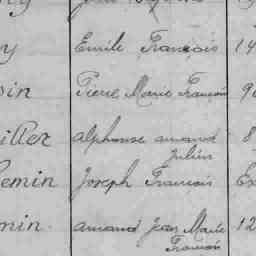 Emile François 14
in Pierre Marie François
iller alphonse amand 8
Julien
emin Joseph François Ex
min amand Jean Marie 12
François